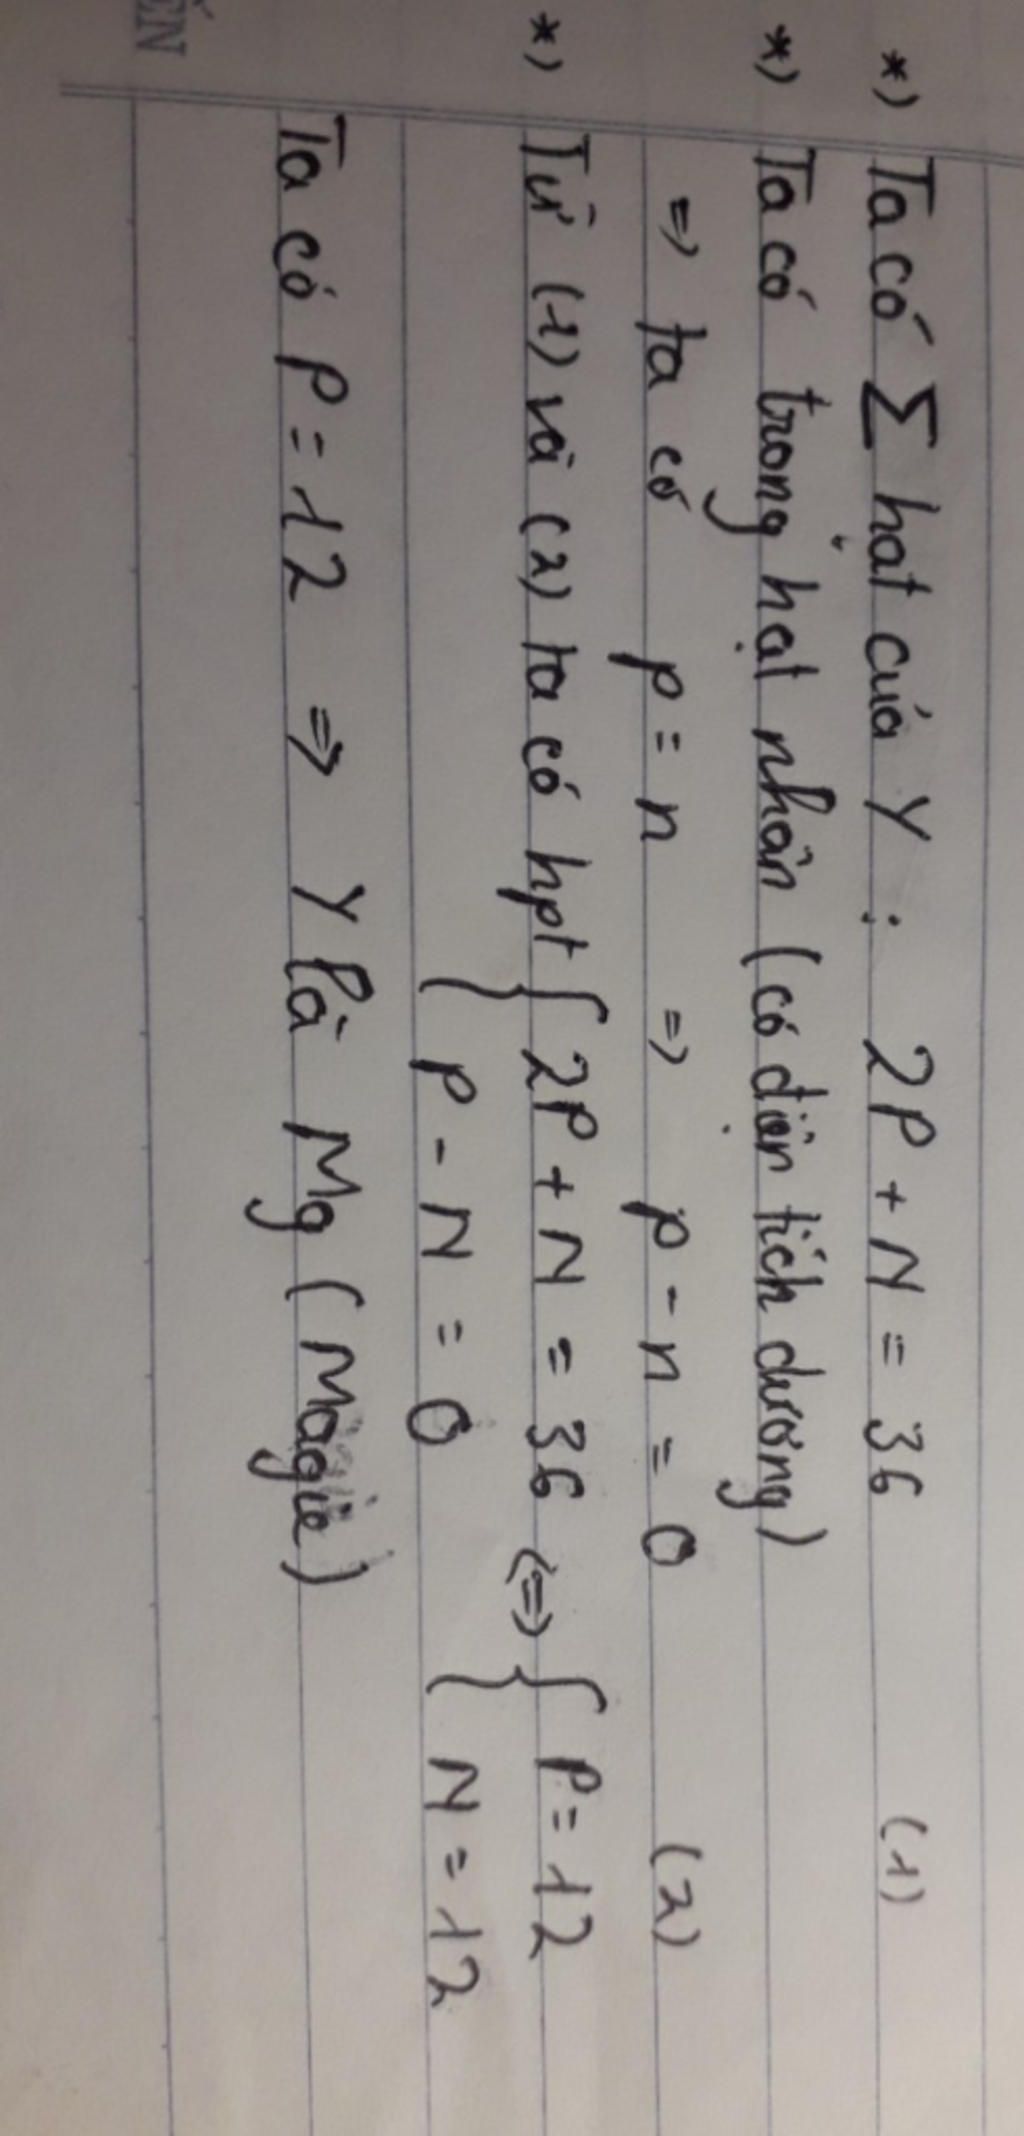 ẾN
*) Ta có Σ hạt của Y : 2P + N = 36 (1)
*) Ta có trong hạt nhân (có điện tích dương)
=> ta có p = n => p - n = 0 (2)
*) Từ (1) và (2) ta có hpt { 2P + N = 36 <=> { P = 12
P - N = 0 N = 12
Ta có P = 12 => Y là Mg (Magiê)